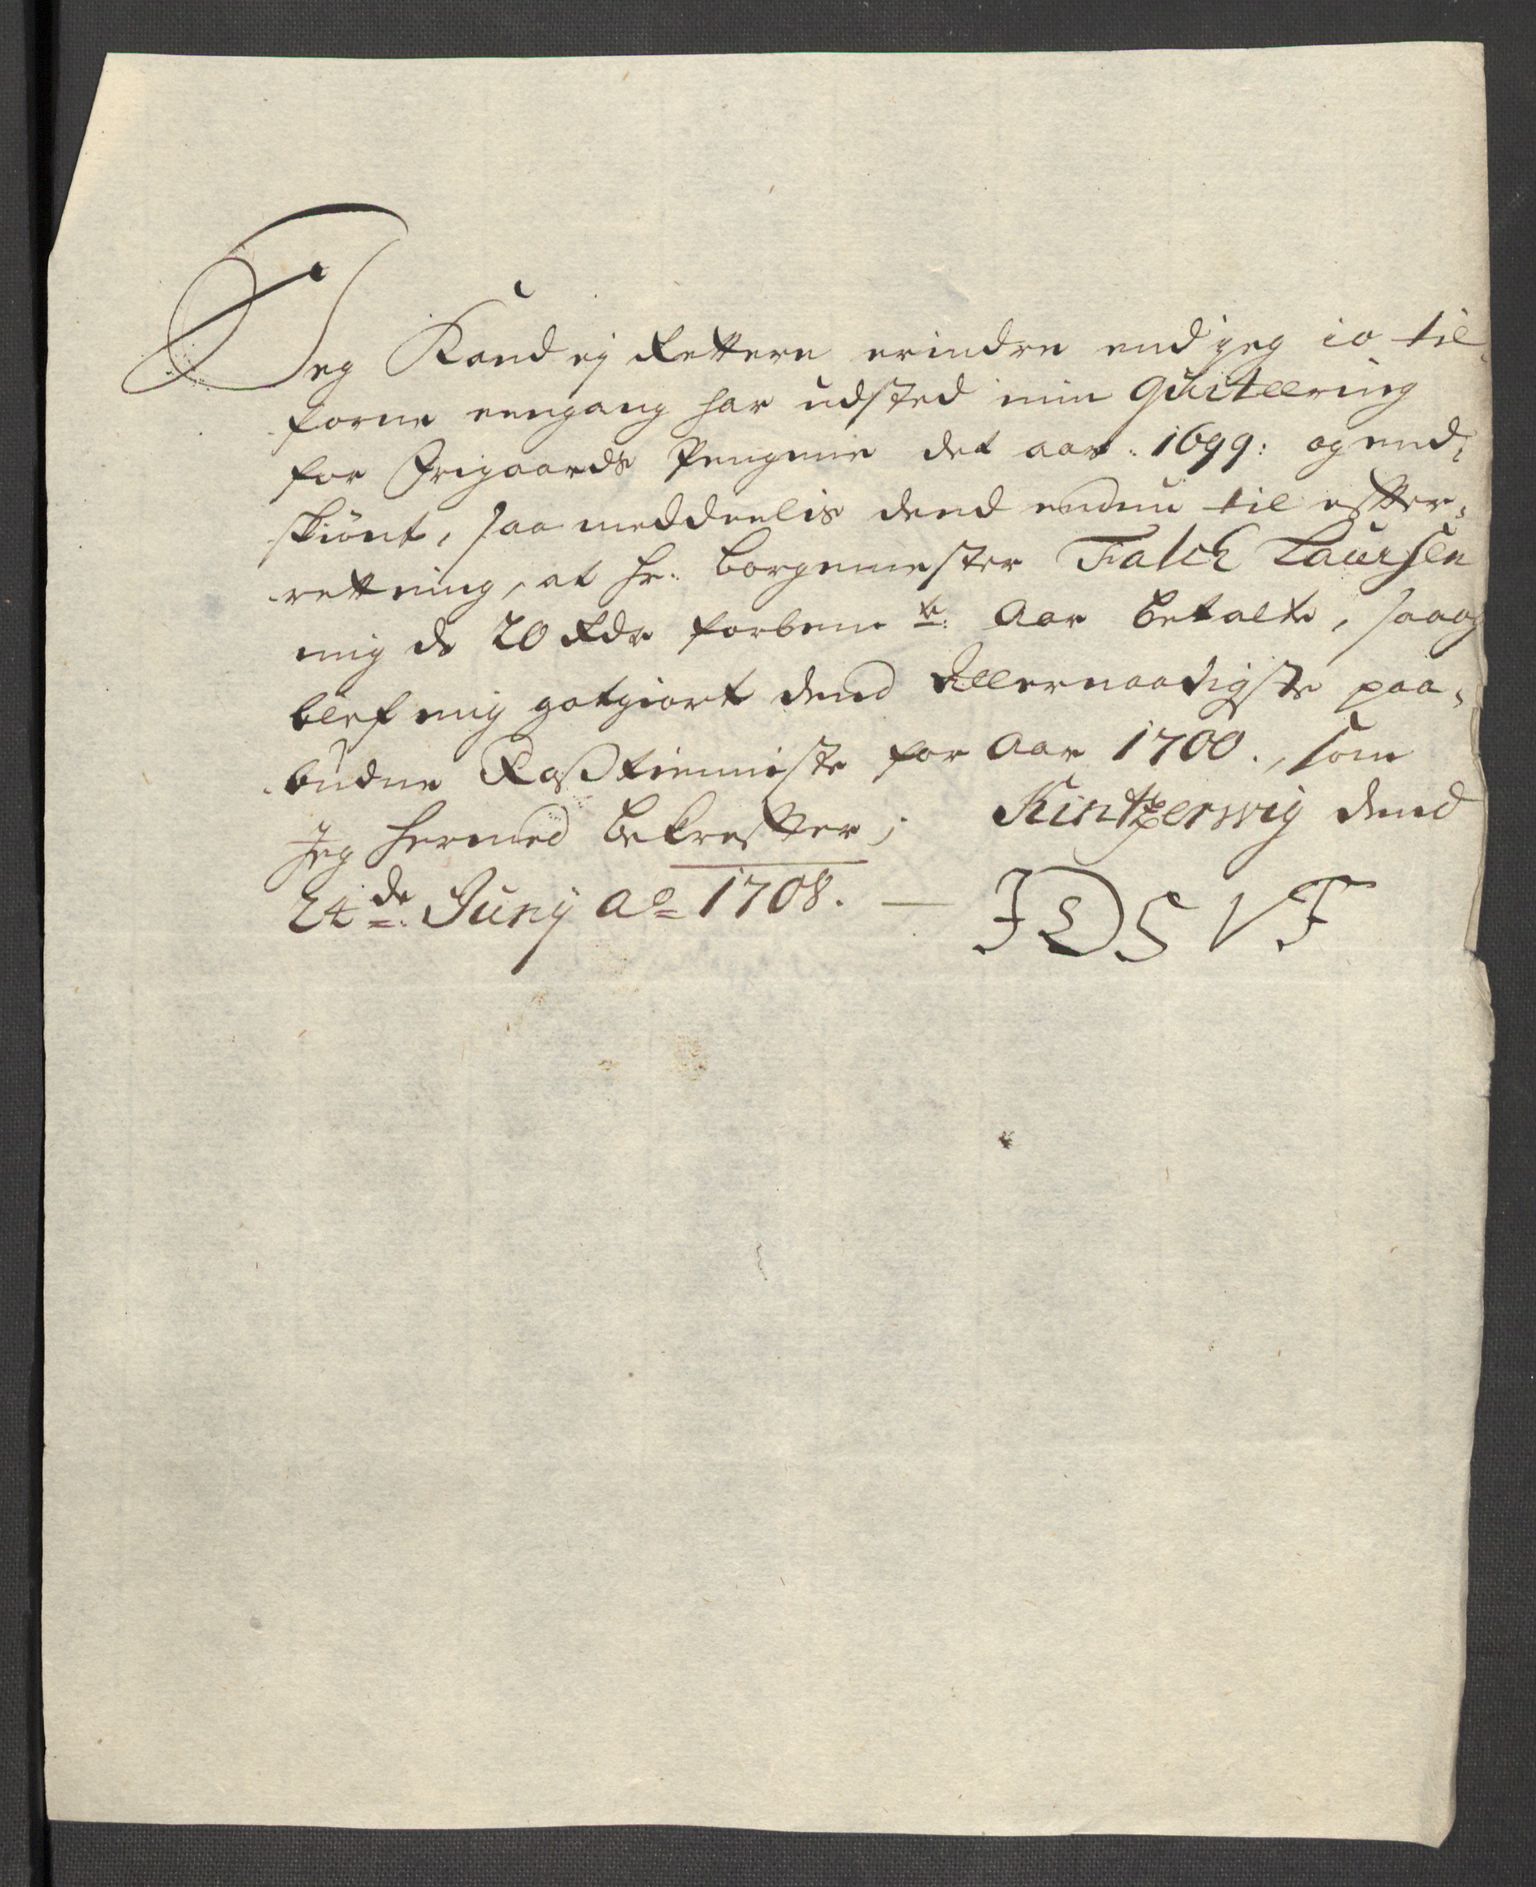 Jeg Kand ej Rettere erindre end jeg io til
forne eengang har udsted min Quiteering
for Frigaards Pengene det aar. 1699: og end-
skiønt, saa meddeelis dend endnu til effter-
rettning, at Hr. borgemester Falch Laursen
mig de 20 Rdr forbem.te Aar betalte, saa og
blef mig gotgiort dend Allernaadigste paa-
budne Rosztienniste for Aar 1700., som
Jeg hermed bekreffter; Kintzerwig dend
24de: Junij Ao 1708. — JDSVF